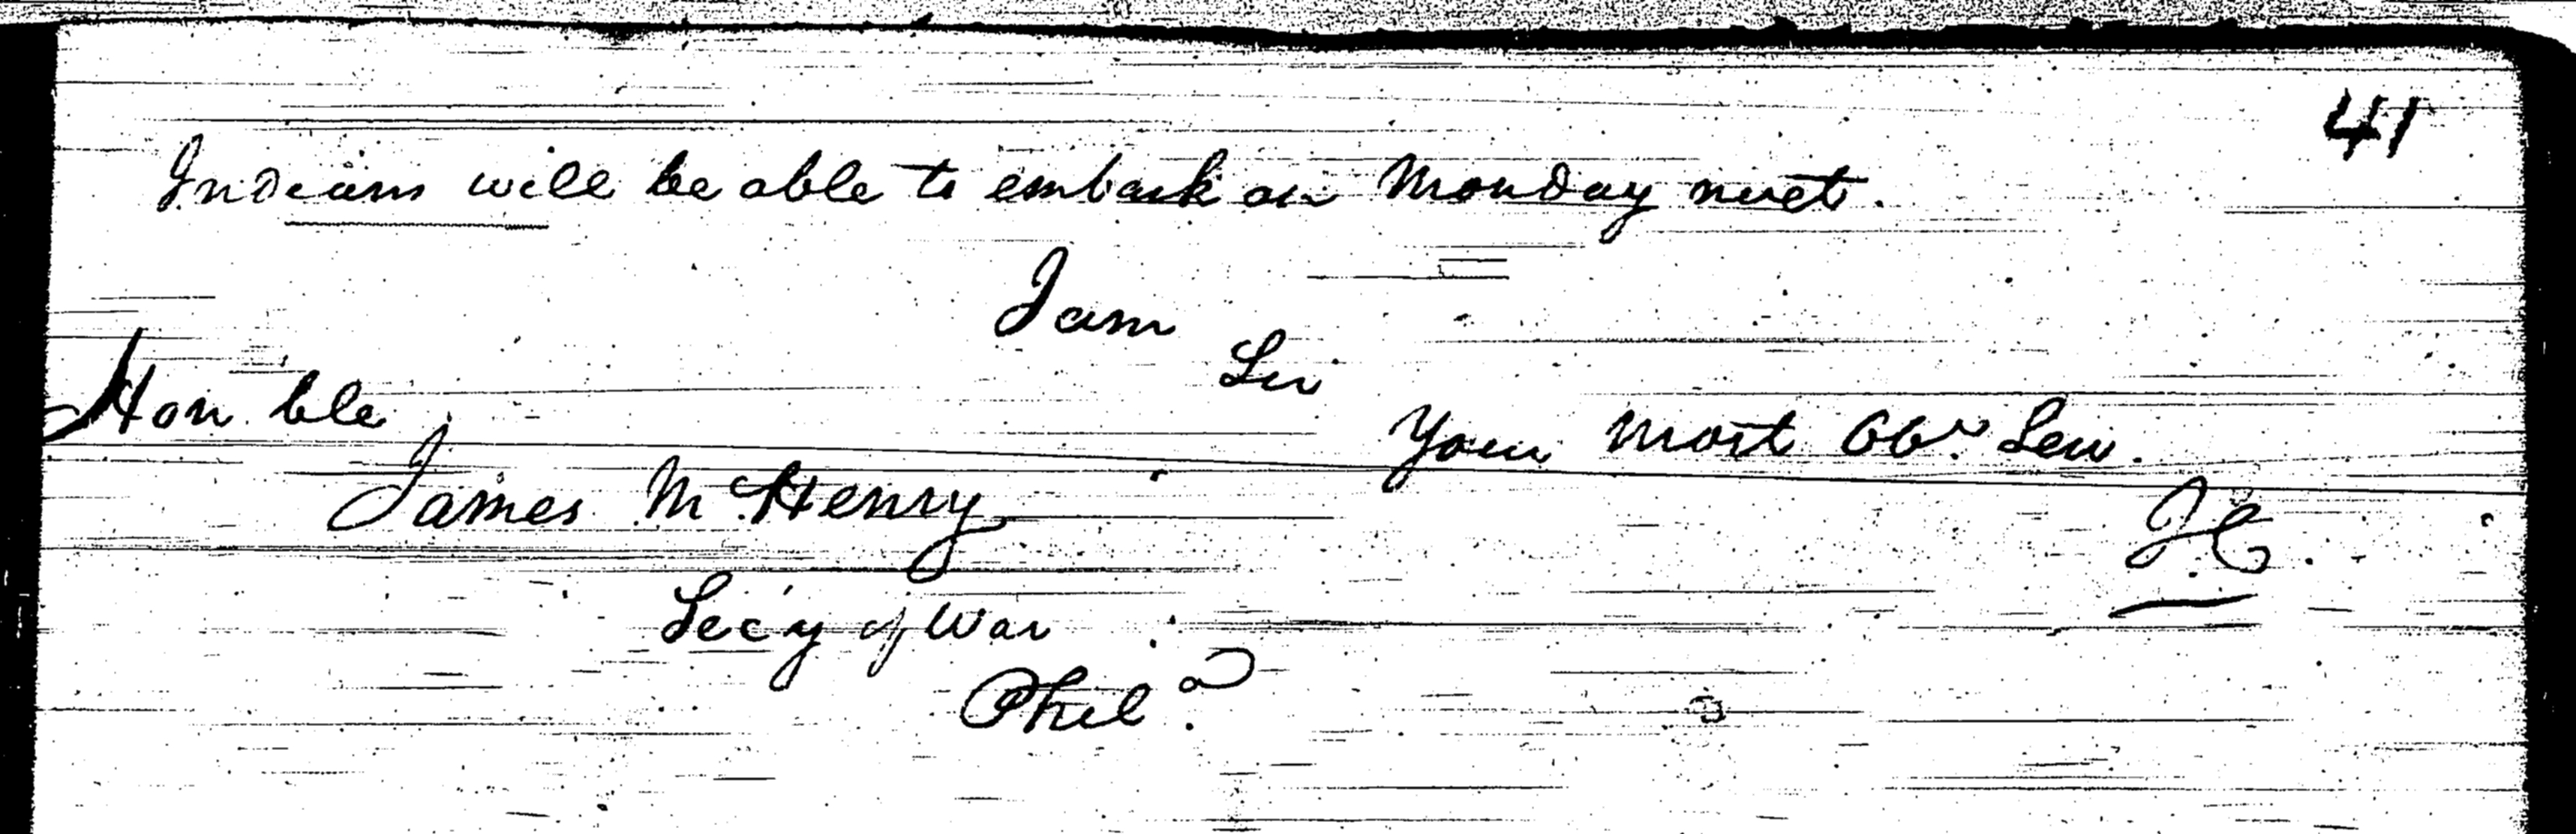 41
Indians will be able to embark on Monday next.
I am
Sir
Your most Obt. Serv.
J C.
Hon ble
James McHenry
Sec'y of War
Phila.